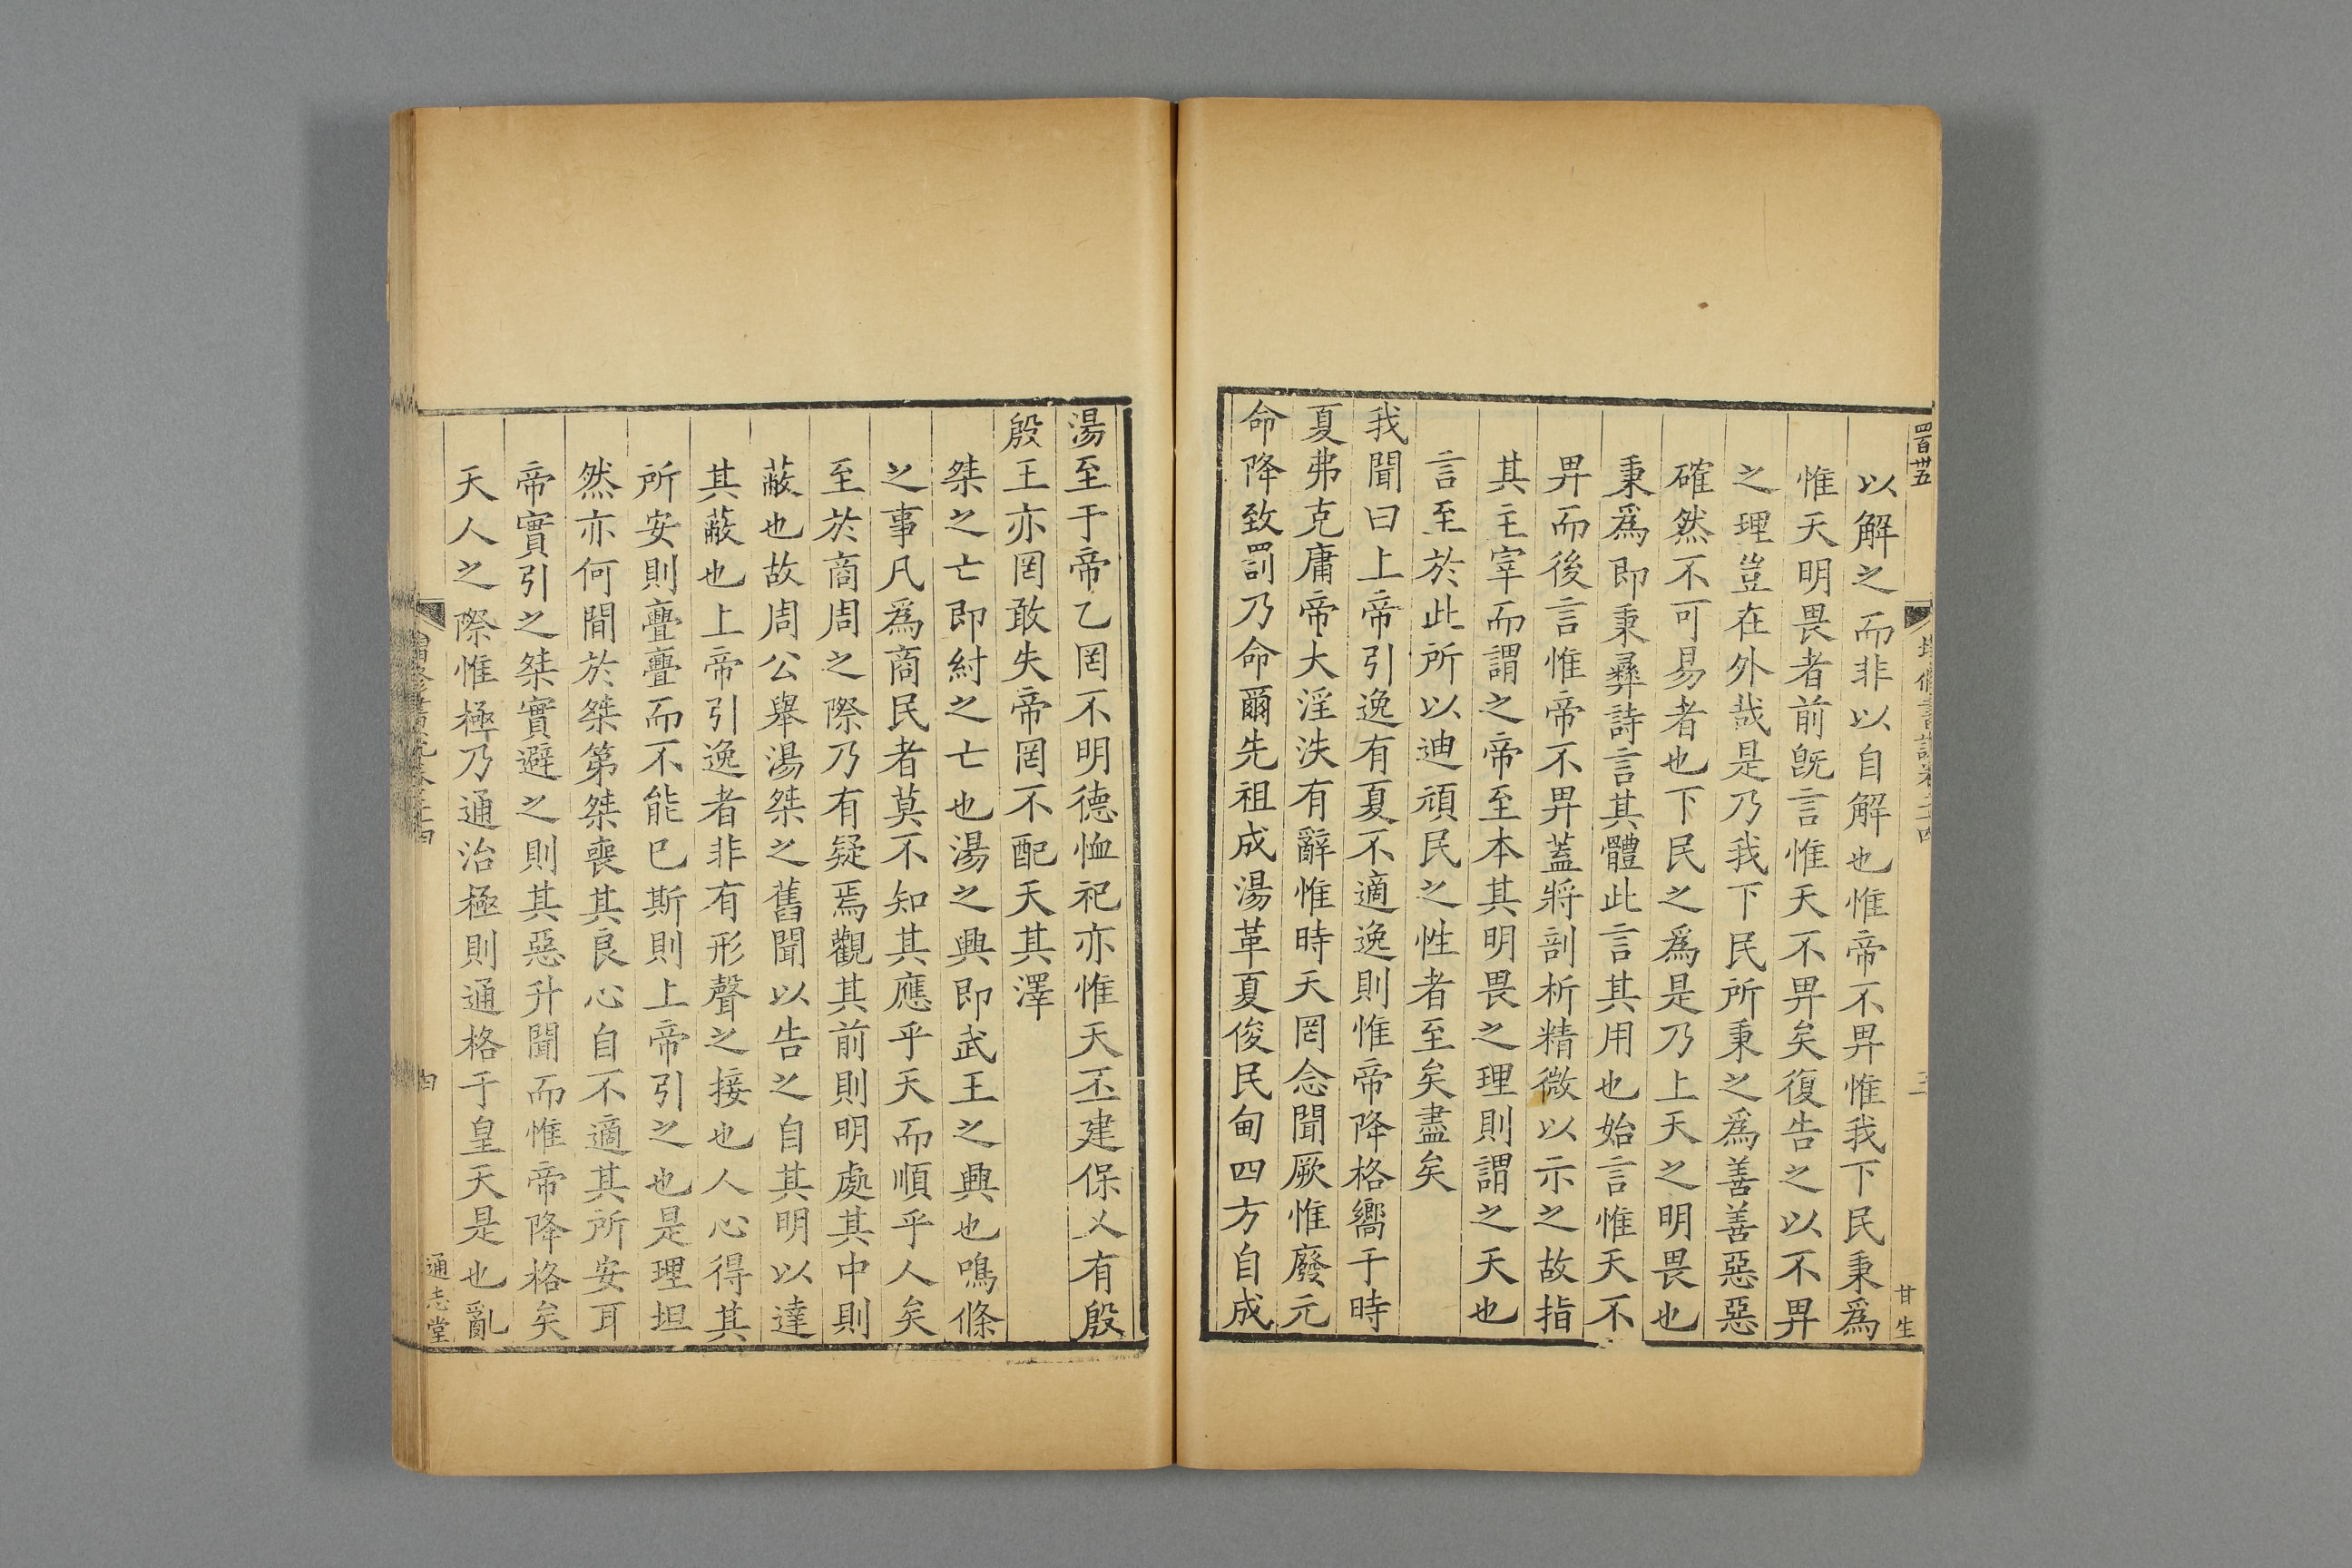 四百卅五
以解之而非以自解也惟帝不畀惟我下民秉爲
惟天明畏者前旣言惟天不畀矣復告之以不畀
之理豈在外哉是乃我下民所秉之爲善善惡惡
確然不可易者也下民之爲是乃上天之明畏也
秉爲即秉彞詩言其體此言其用也始言惟天不
畀而後言惟帝不畀蓋將剖析精微以示之故指
其主宰而謂之帝至本其明畏之理則謂之天也
言至於此所以迪頑民之性者至矣盡矣
我聞曰上帝引逸有夏不適逸則惟帝降格嚮于時
夏弗克庸帝大淫泆有辭惟時天罔念聞厥惟廢元
命降致罰乃命爾先祖成湯革夏俊民甸四方自成
甘生
湯至于帝乙罔不明德恤祀亦惟天丕建保乂有殷
殷王亦罔敢失帝罔不配天其澤
桀之亡即紂之亡也湯之興即武王之興也鳴條
之事凡爲商民者莫不知其應乎天而順乎人矣
至於商周之際乃有疑焉觀其前則明處其中則
蔽也故周公舉湯桀之舊聞以告之自其明以達
其蔽也上帝引逸者非有形聲之接也人心得其
所安則亹亹而不能已斯則上帝引之也是理坦
然亦何間於桀第桀喪其良心自不適其所安耳
帝實引之桀實避之則其惡升聞而惟帝降格矣
天人之際惟極乃通治極則通格于皇天是也亂
四
通志堂